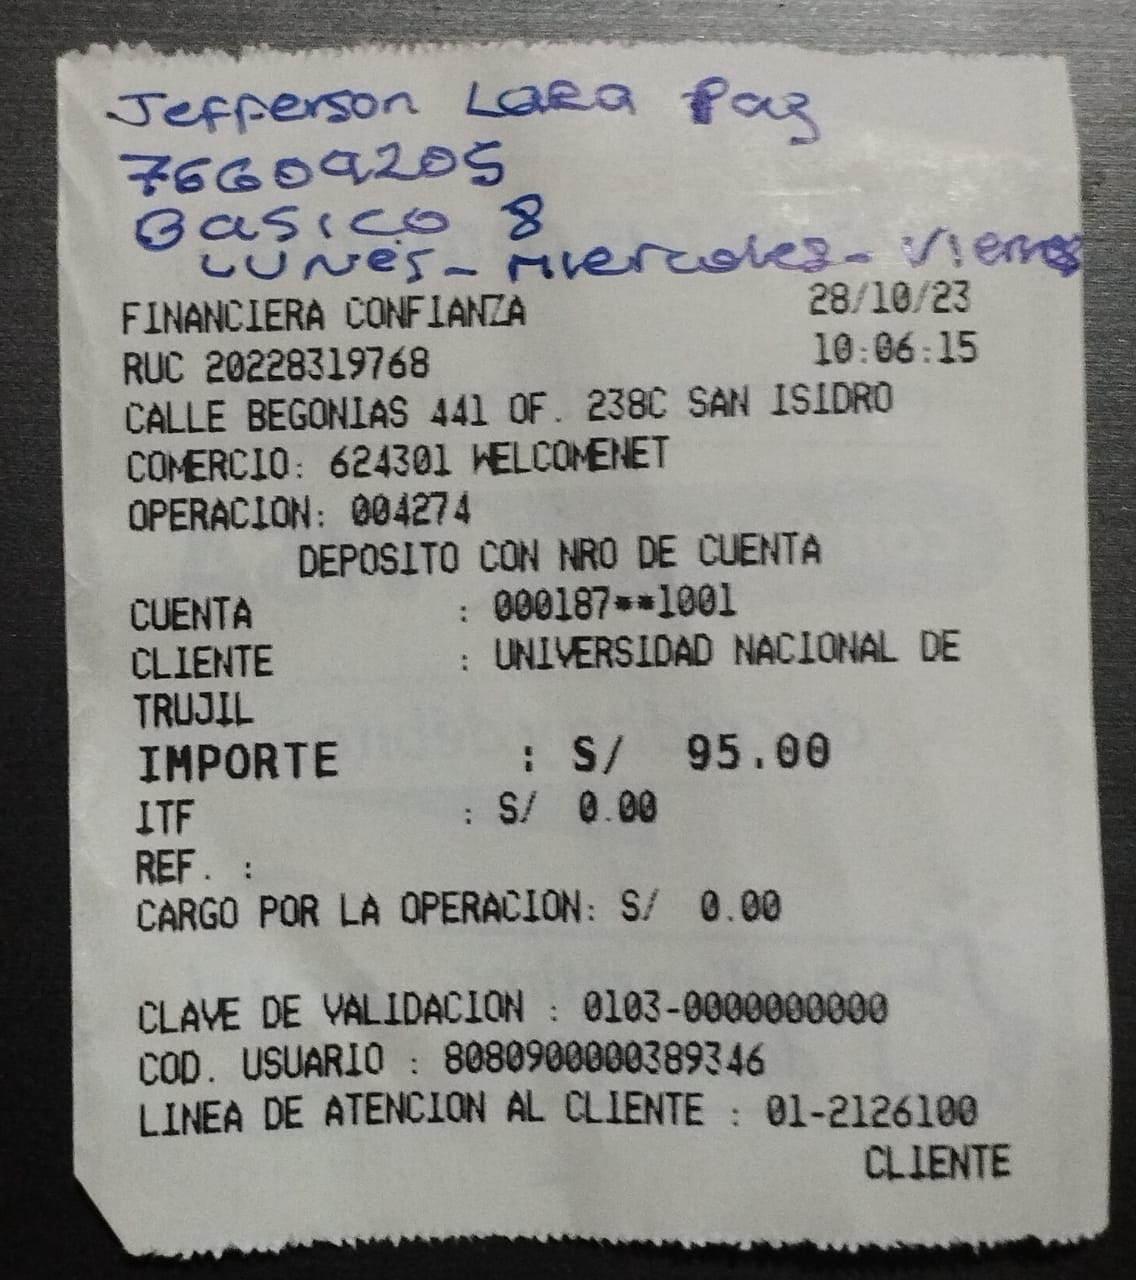 Jefferson Lara Paz
76609205
Basico 8
Lunes - Miercoles - Viernes
FINANCIERA CONFIANZA 28/10/23
RUC 20228319768 10:06:15
CALLE BEGONIAS 441 OF. 238C SAN ISIDRO
COMERCIO: 624301 WELCOMENET
OPERACION: 004274
DEPOSITO CON NRO DE CUENTA
CUENTA : 000187**1001
CLIENTE : UNIVERSIDAD NACIONAL DE
TRUJIL
IMPORTE : S/ 95.00
ITF : S/ 0.00
REF. :
CARGO POR LA OPERACION: S/ 0.00
CLAVE DE VALIDACION : 0103-0000000000
COD. USUARIO : 8080900000389346
LINEA DE ATENCION AL CLIENTE : 01-2126100
CLIENTE